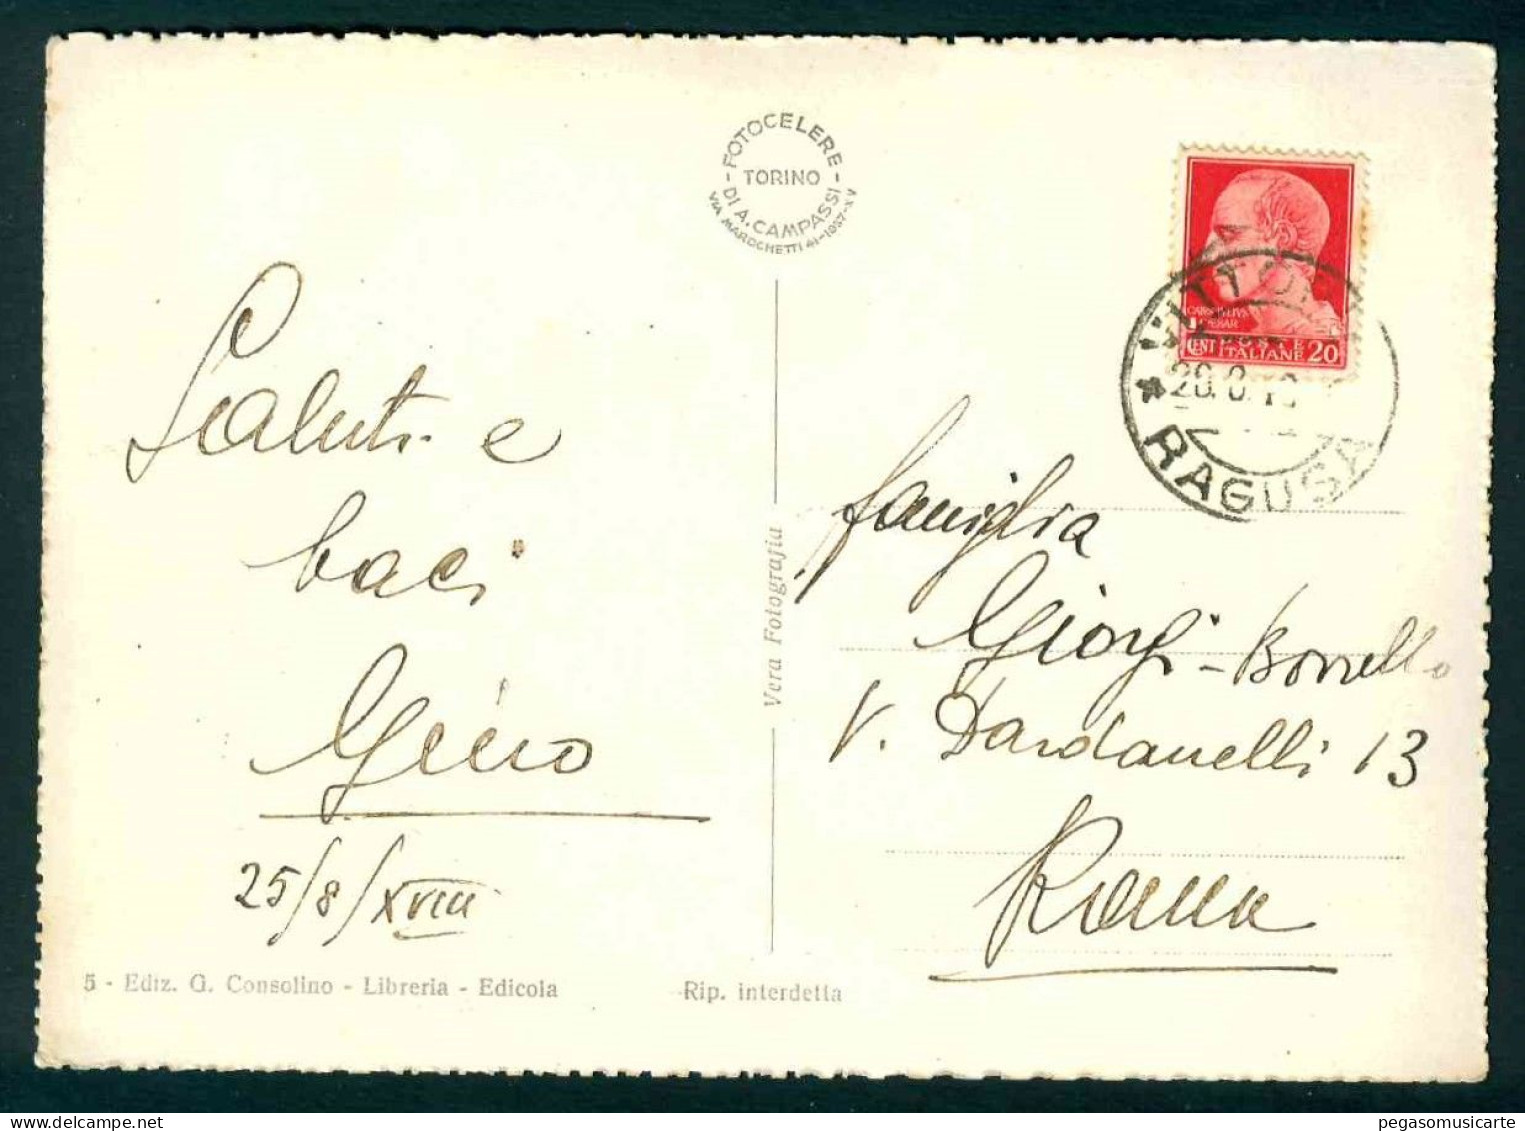 FOTOCELERE
TORINO
DI A. CAMPASSI
VIA MAROCHETTI 41-1937-XV
CENT POSTE
ITALIANE 20
VITTORIA
RAGUSA
Saluti e
baci
Gino
25/8/XVIII
Vera Fotografia
famiglia
Giorgi-Borrello
V. Dardanelli 13
Roma
5 - Ediz. G. Consolino - Libreria - Edicola
Rip. interdetta
pegasomusicarte